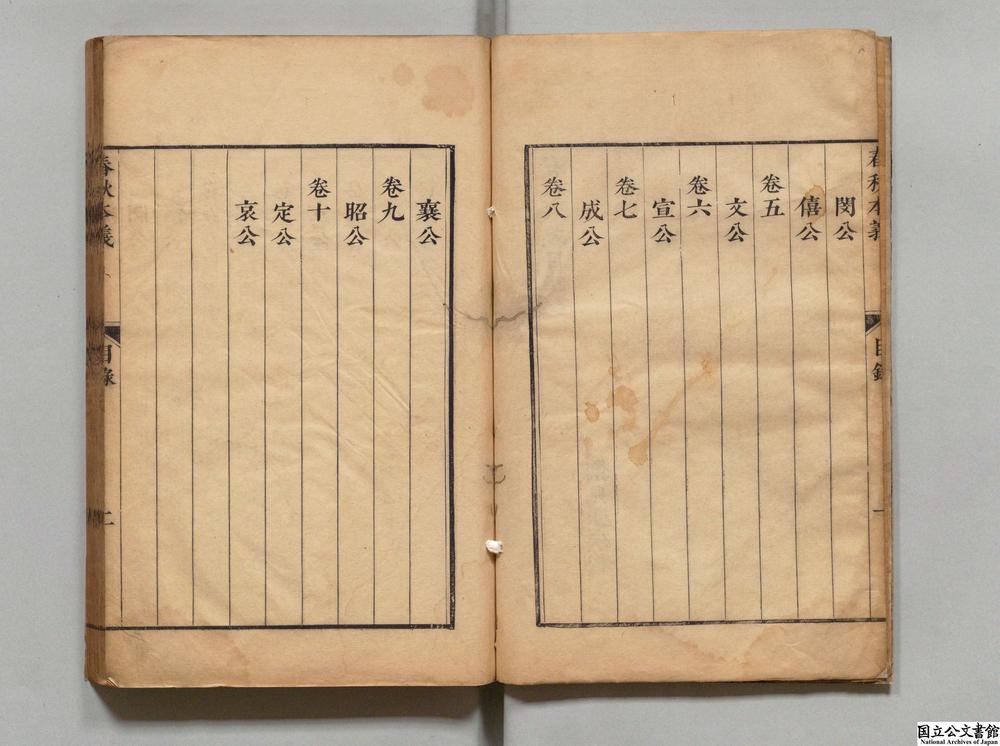 春秋本義
目錄
一
閔公
僖公
卷五
文公
卷六
宣公
卷七
成公
卷八
襄公
卷九
昭公
卷十
定公
哀公
春秋本義
目錄
二
国立公文書館
National Archives of Japan